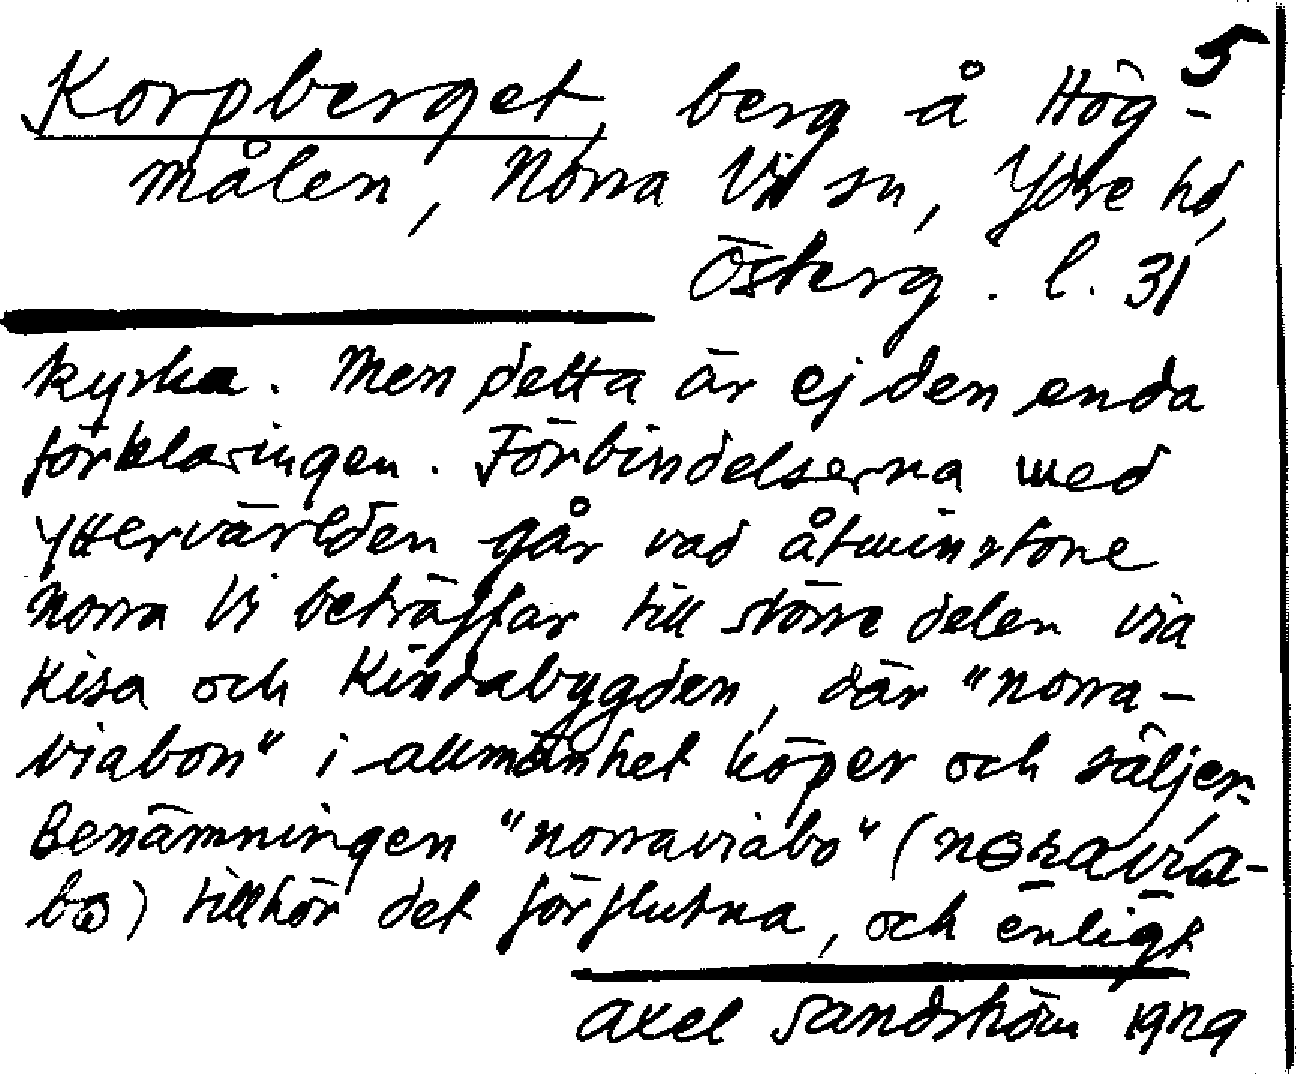 5
Korpberget, berg å Hög-
målen, Norra Vi sn, Ydre hd,
Österg. l. 31
kyrka. Men detta är ej den enda
förklaringen. Förbindelserna med
yttervärlden går vad åtminstone
Norra Vi beträffar till större delen via
Kisa och Kindabygden, där "norra-
viabon" i allmänhet köper och säljer.
Benämningen "norraviabo" (
) tillhör det förflutna, och enligt
Axel Sandström 1929